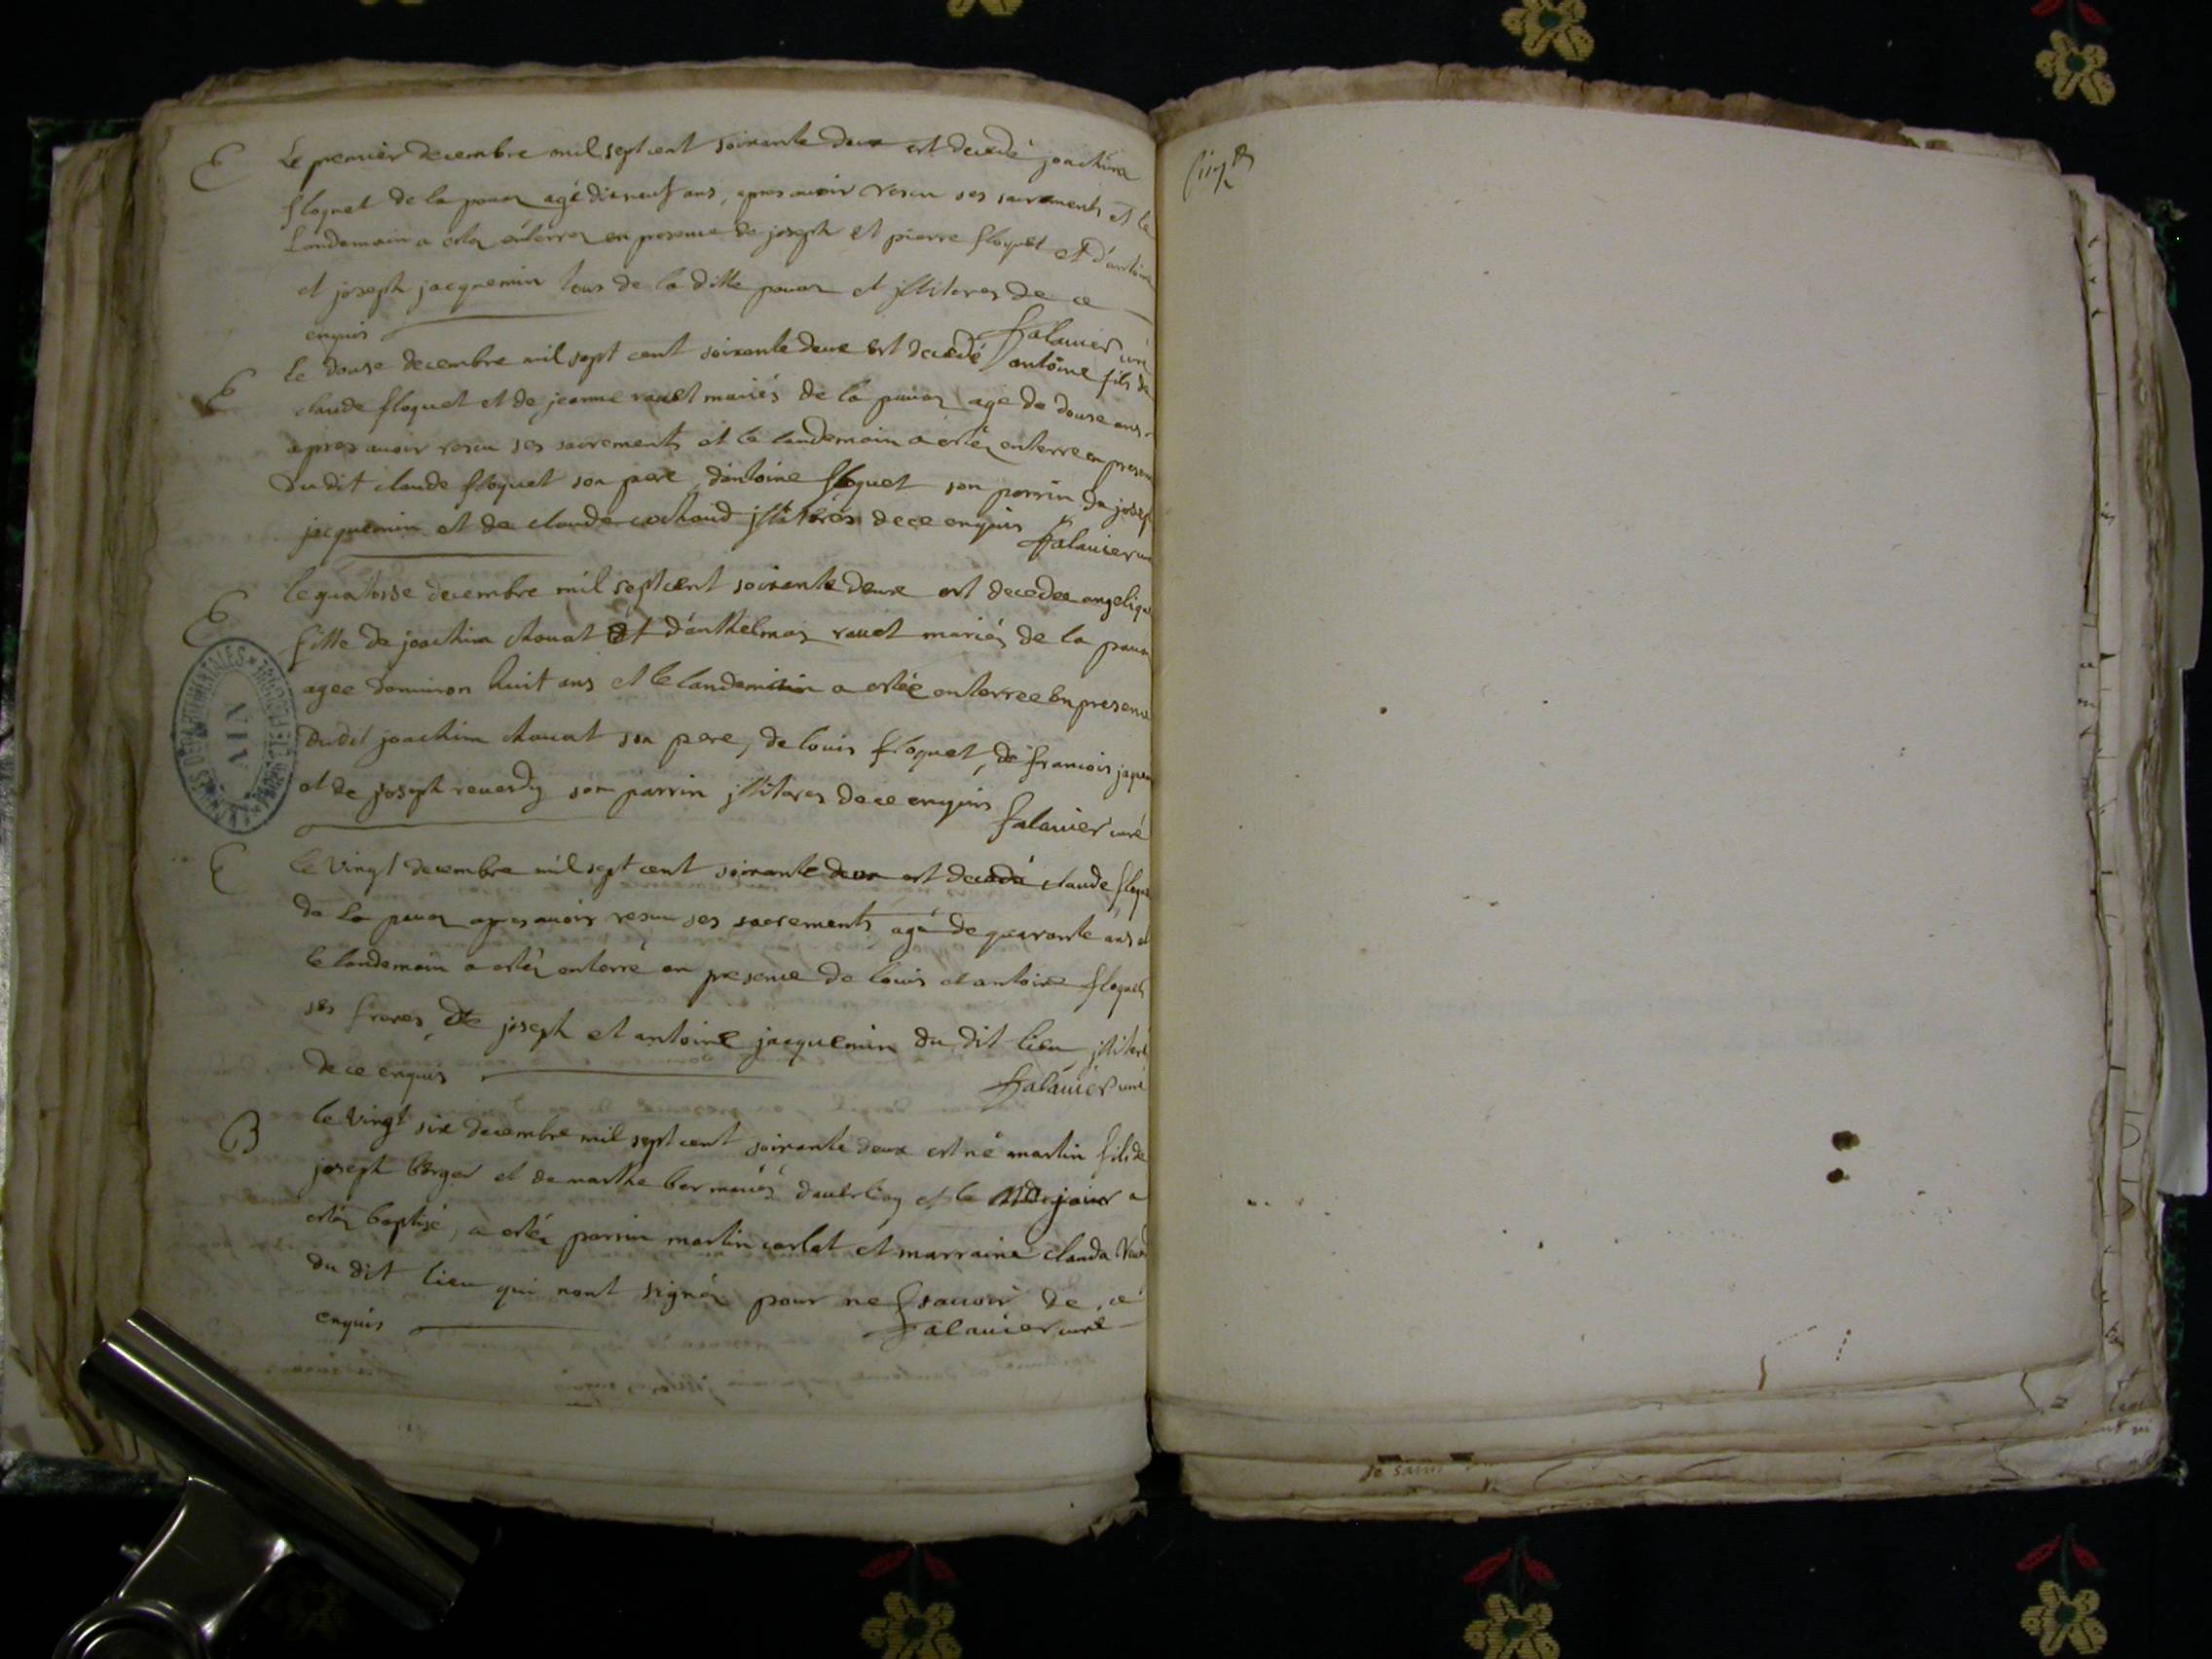 E Le premier decembre mil sept cent soixante deux est decedé joachim
floquet de la pavaz agé dixneuf ans, apres avoir resçu ses sacrements et le
landemain a estez enterrez en presence de joseph et pierre floquet et d'antoine
et joseph jacquemin tous de la ditte pavaz et jlliteres de ce
enquis falavier curé
E le douse decembre mil sept cent soixante deux est decedé antoine fils de
claude floquet et de jeanne ravet mariés de la pavaz agé de douse ans
apres avoir resçu ses sacrements et le landemain a estéz enterré en presen
du dit claude floquet son pere, d'antoine floquet son parrin de josep
jacquemin et de claude cochaud jlliterés de ce enquis falavier cu
E le quatorse decembre mil sept cent soixante deux est decedee angeliqu
fille de joachim chouat et d'anthelmaz ravet mariés de la pava
agee d'environ huit ans et le landemain a estée enterree en presence
du dit joachim chouat son pere, de louis floquet, de francois jaque
et de joseph reverdy son parrin jlliteres de ce enquis falavier curé
E le vingt decembre mil sept cent soixante deux est decedé claude floqu
de la pavaz apres avoir resçu ses sacrements agé de quarante ans et
le landemain a estéz enterré en presence de louis et antoine floquet
ses freres, de joseph et antoine jacquemin du dit lieu jlliteré
de ce enquis falavier curé
B le vingt six decembre mil sept cent soixante deux est né martin fils de
joseph berger et de marthe ber mariés et le jour a
estéz baptisé, a estéz parrin martin carlet et marraine clauda
du dit lieu qui n'ont signéz pour ne sçavoir de ce
enquis falavier curé
ARCHIVES DEPARTEMENTALES
AIN